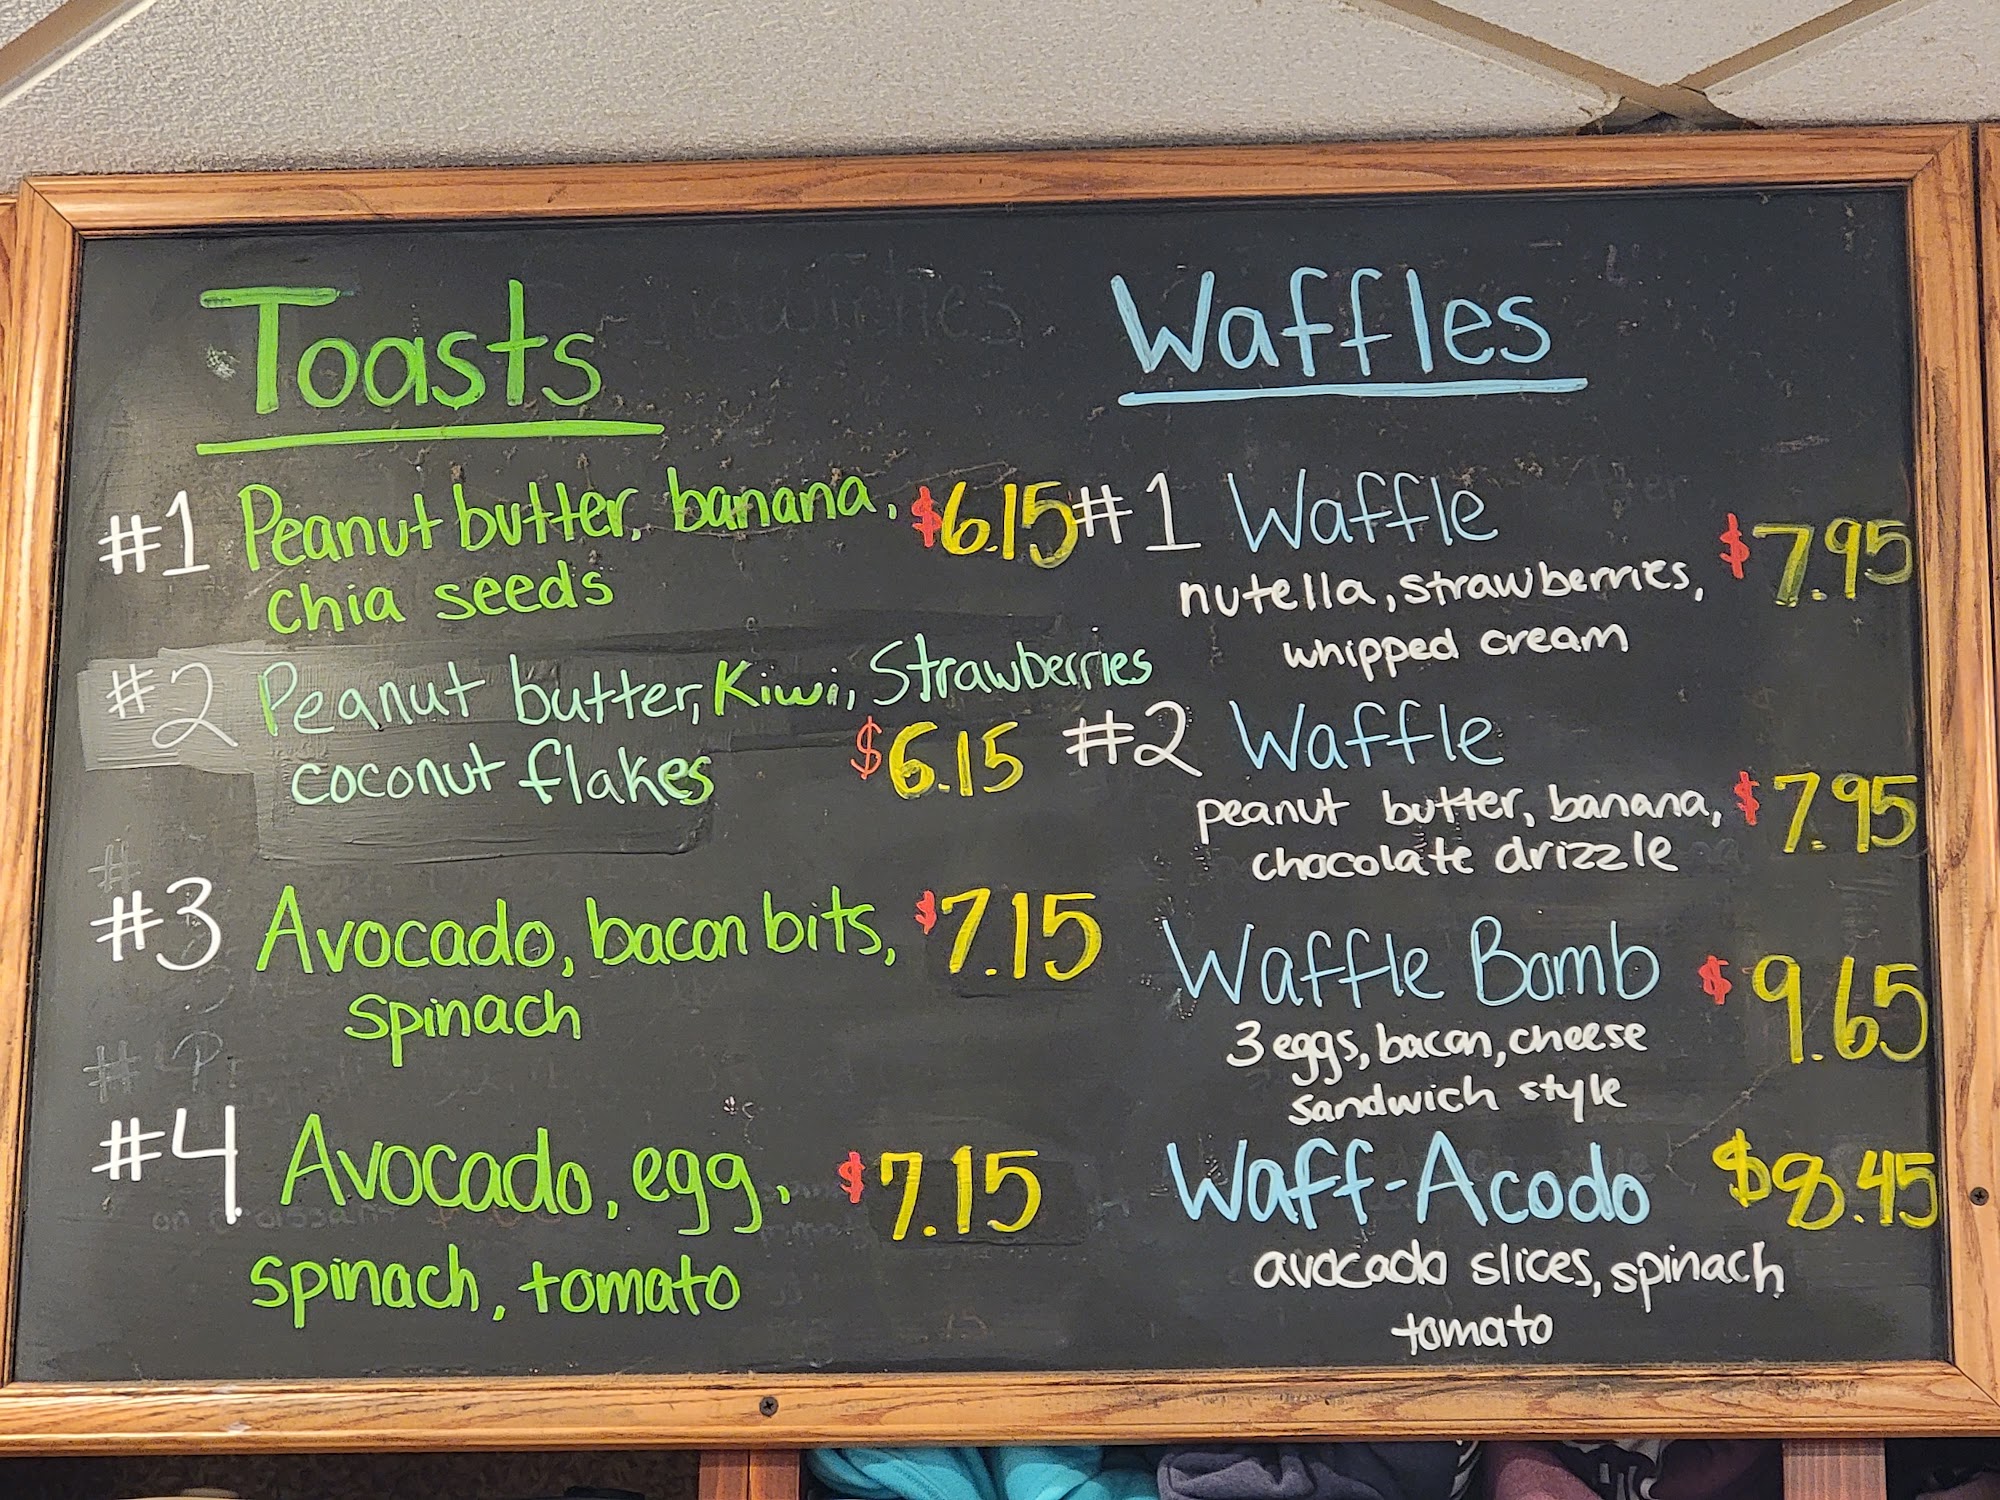 Toasts
#1 Peanut butter, banana, $6.15
chia seeds
#2 Peanut butter, Kiwi, Strawberries
coconut flakes $6.15
#3 Avocado, bacon bits, $7.15
spinach
#4 Avocado, egg, $7.15
spinach, tomato
Waffles
#1 Waffle $7.95
nutella, strawberries,
whipped cream
#2 Waffle
peanut butter, banana, $7.95
chocolate drizzle
Waffle Bomb $9.65
3 eggs, bacon, cheese
sandwich style
Waff-Acodo $8.45
avocado slices, spinach
tomato